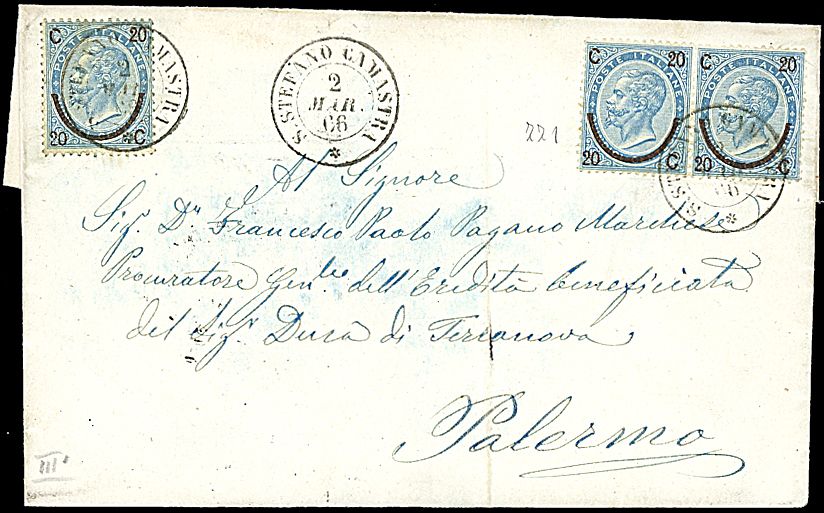 C 20
POSTE ITALIANE
20 C
S. STEFANO CAMASTRA
2
MAR.
66
*
C 20
POSTE ITALIANE
20 C
C 20
POSTE ITALIANE
20 C
221
Al Signore
Sig.r D.r Francesco Paolo Pagano Marchese
Procuratore Gen.le dell'Eredità beneficiata
del Sig.r Duca di Terranova
Palermo
III'